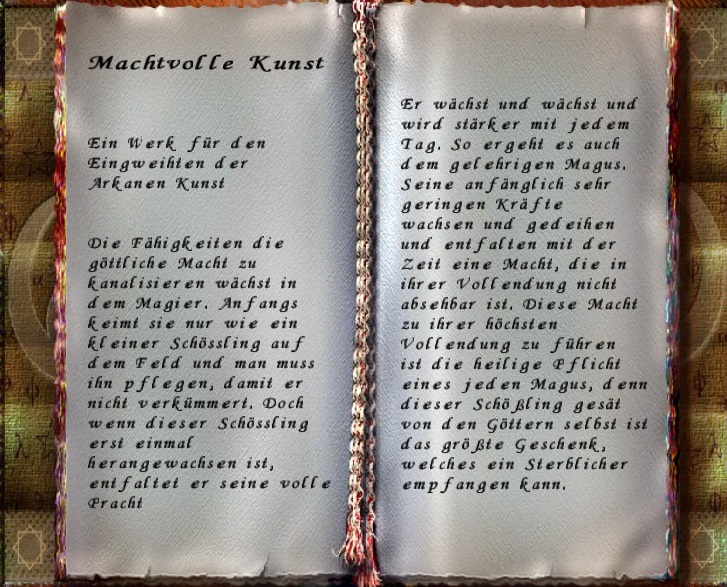 Machtvolle Kunst
Ein Werk für den
Eingweihten der
Arkanen Kunst
Die Fähigkeiten die
göttliche Macht zu
kanalisieren wächst in
dem Magier. Anfangs
keimt sie nur wie ein
kleiner Schössling auf
dem Feld und man muss
ihn pflegen, damit er
nicht verkümmert. Doch
wenn dieser Schössling
erst einmal
herangewachsen ist,
entfaltet er seine volle
Pracht
Er wächst und wächst und
wird stärker mit jedem
Tag. So ergeht es auch
dem gelehrigen Magus.
Seine anfänglich sehr
geringen Kräfte
wachsen und gedeihen
und entfalten mit der
Zeit eine Macht, die in
ihrer Vollendung nicht
absehbar ist. Diese Macht
zu ihrer höchsten
Vollendung zu führen
ist die heilige Pflicht
eines jeden Magus, denn
dieser Schößling gesät
von den Göttern selbst ist
das größte Geschenk,
welches ein Sterblicher
empfangen kann.